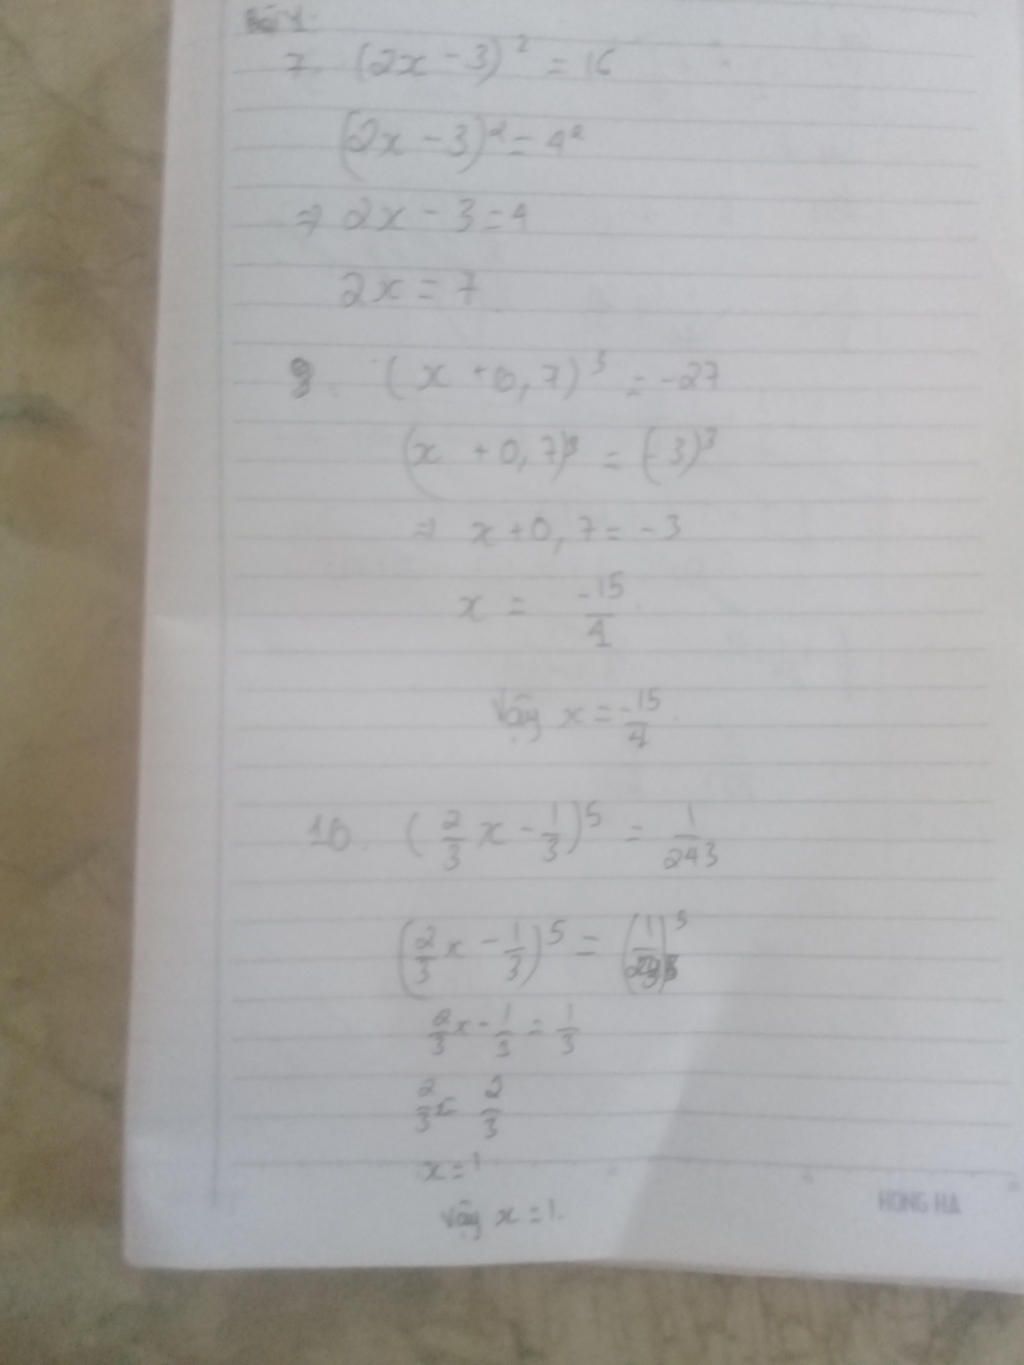 Bài 1.
7. (2x - 3)² = 16
(2x - 3)² = 4²
⇒ 2x - 3 = 4
2x = 7
9. (x + 0,7)³ = -27
(x + 0,7)³ = (-3)³
⇒ x + 0,7 = -3
x = -15/4
Vậy x = -15/4
10. (2/3 x - 1/3)⁵ = 1/243
(2/3 x - 1/3)⁵ = (1/3)⁵
2/3 x - 1/3 = 1/3
2/3 x = 2/3
x = 1
Vậy x = 1.
HONG HA